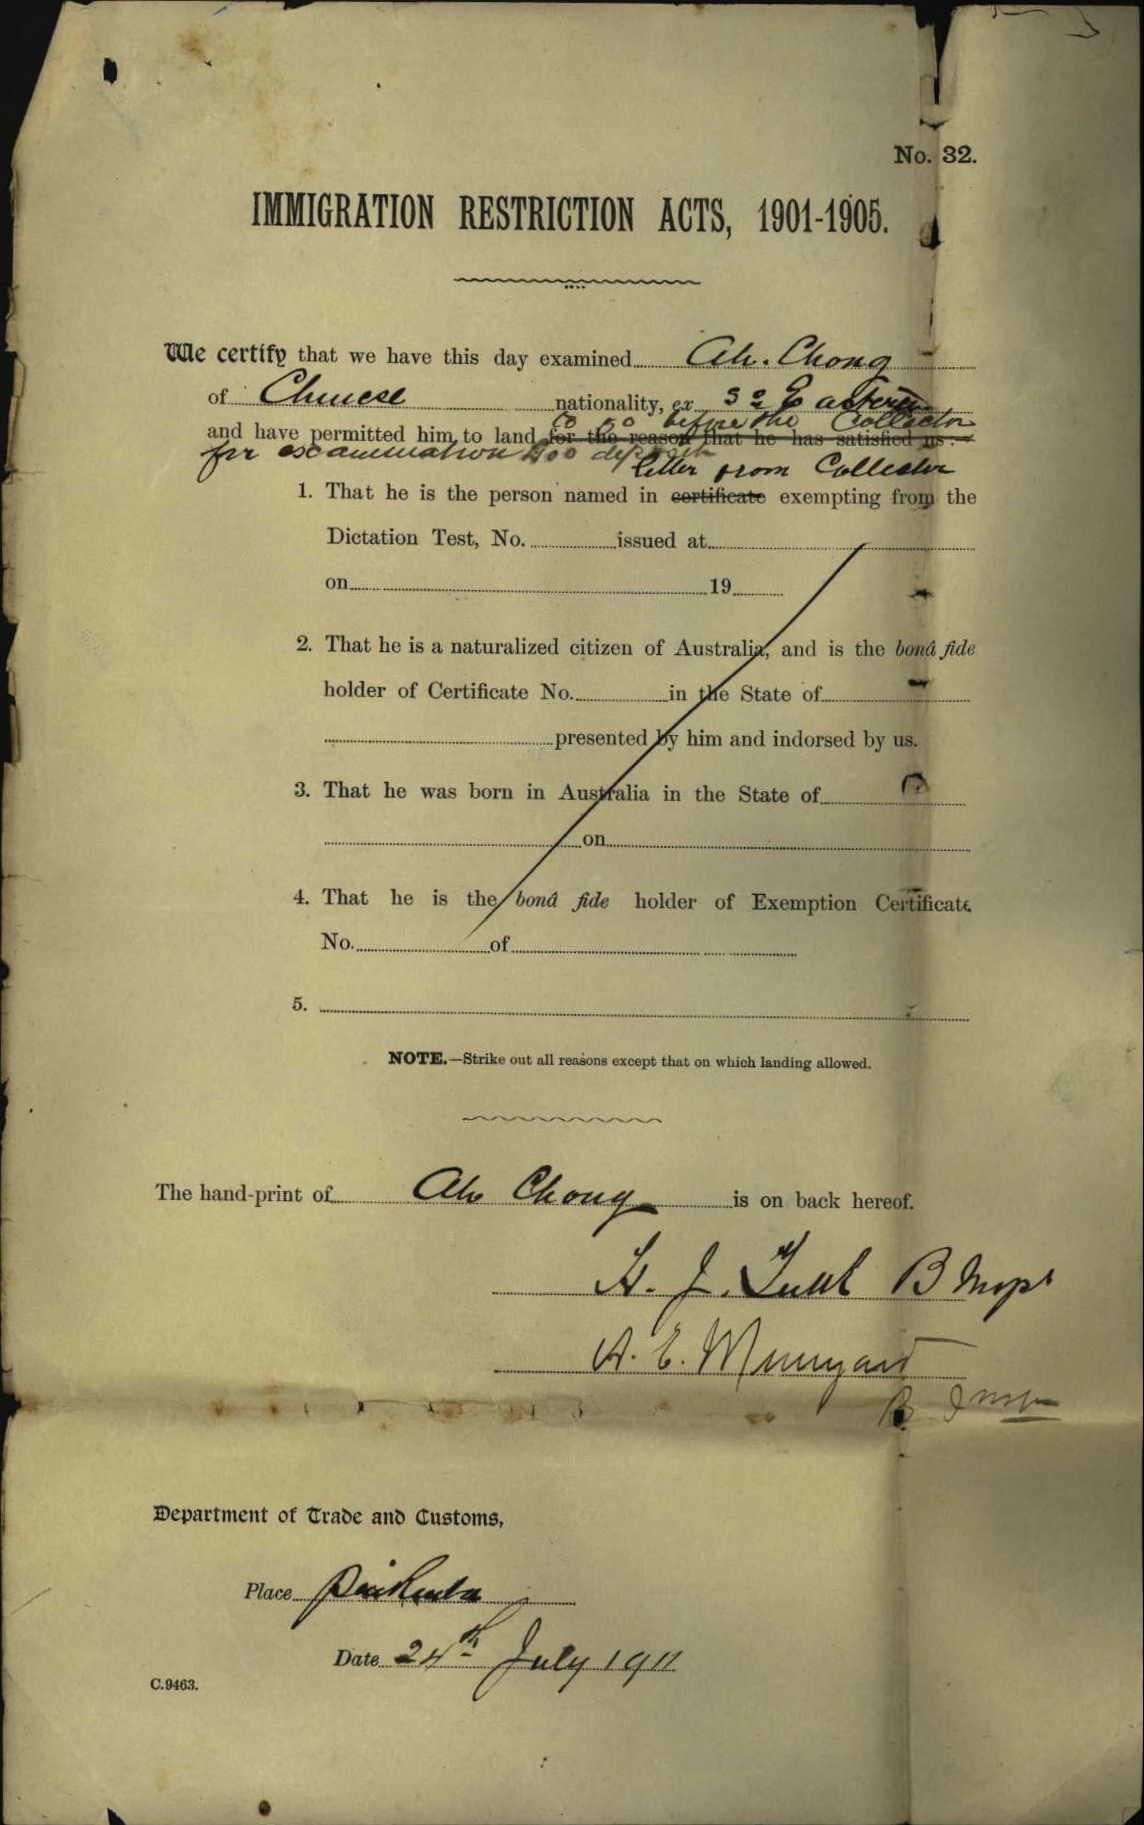 No. 32.
IMMIGRATION RESTRICTION ACTS, 1901-1905.
We certify that we have this day examined Ah. Chong
of Chinese nationality, ex SS Eastern
to go before the Collector
and have permitted him to land for the reason that he has satisfied us :—
for examination £100 deposit
letter from Collector
1. That he is the person named in certificate exempting from the
Dictation Test, No. issued at
on 19
2. That he is a naturalized citizen of Australia, and is the bonâ fide
holder of Certificate No. in the State of
presented by him and indorsed by us.
3. That he was born in Australia in the State of
on
4. That he is the bonâ fide holder of Exemption Certificate
No. of
5.
NOTE.—Strike out all reasons except that on which landing allowed.
The hand-print of Ah Chong is on back hereof.
H. J. B Inspr
A. E.
B. Inspr
Department of Trade and Customs,
Place Pinkenba
Date 24th July 1911
C.9463.